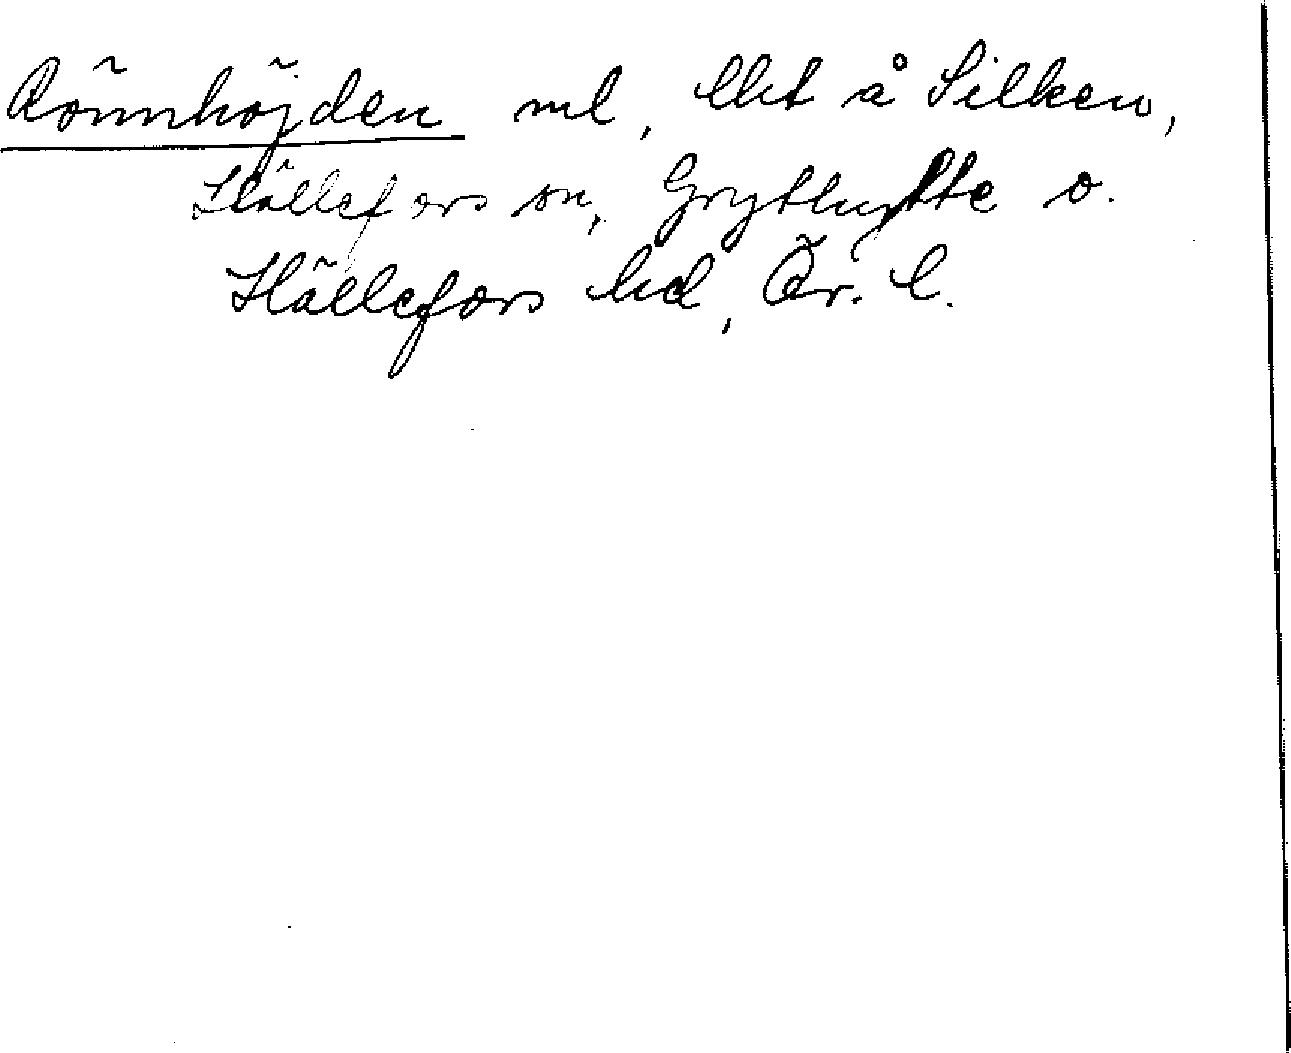 Rönnhöjden ml, lht å Silken,
Hällefors sn, Grythytte o.
Hällefors hd, Ör. l.